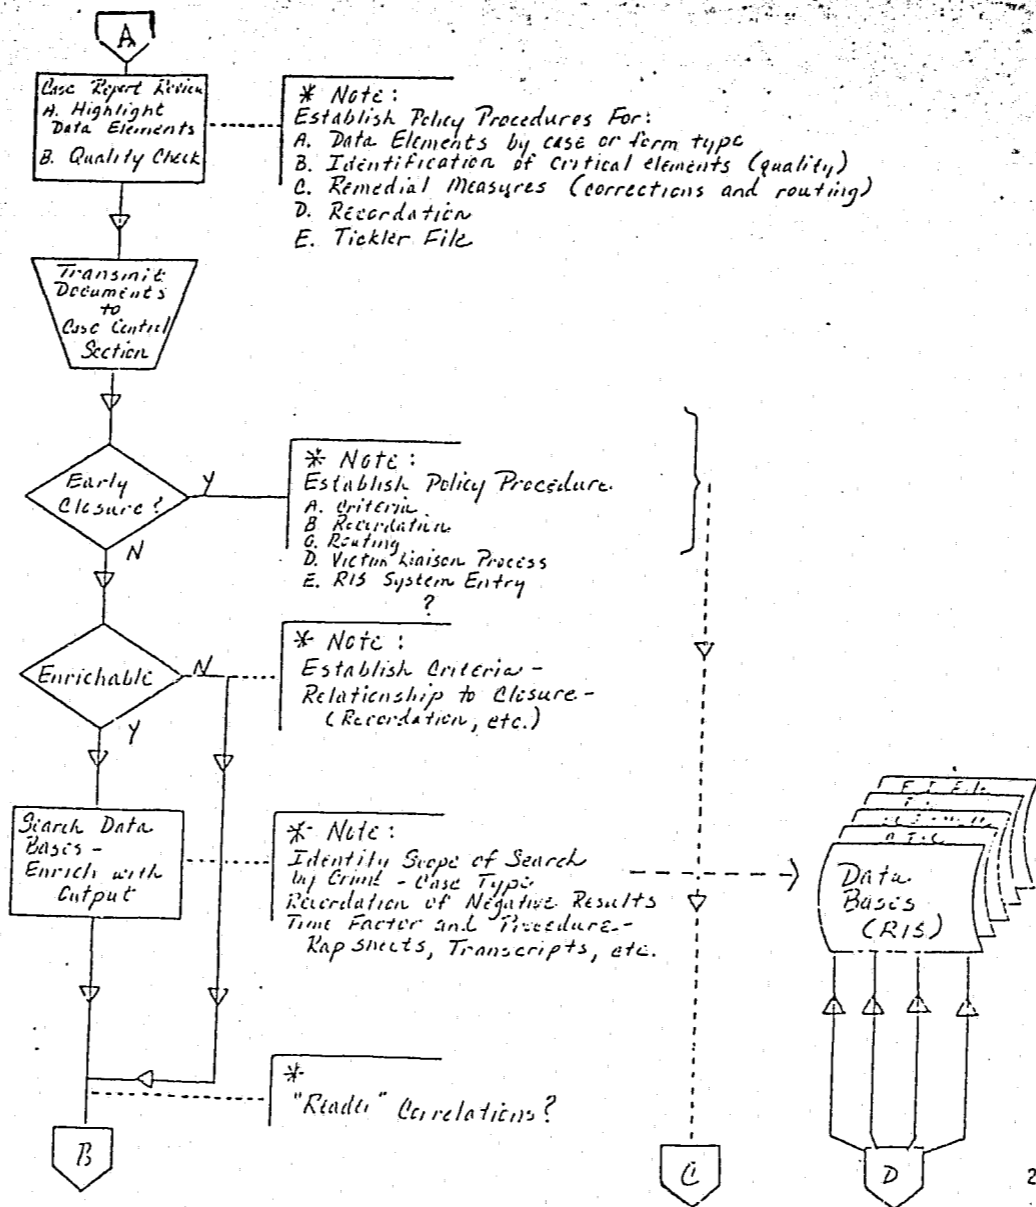 A
Case Report Review
A. Highlight
Data Elements
B. Quality Check
* Note:
Establish Policy Procedures For:
A. Data Elements by case or form type
B. Identification of critical elements (quality)
C. Remedial Measures (corrections and routing)
D. Recordation
E. Tickler File
Transmit
Documents
to
Case Control
Section
Early
Closure?
Y
N
* Note:
Establish Policy Procedure
A. Criteria
B Recordation
C. Routing
D. Victim Liaison Process
E. RIS System Entry
?
Enrichable
N
Y
* Note:
Establish Criteria -
Relationship to Closure -
(Recordation, etc.)
Search Data
Bases -
Enrich with
Output
* Note:
Identity Scope of Search
by Crime - Case Type
Recordation of Negative Results
Time Factor and Procedure -
Rap sheets, Transcripts, etc.
Data
Bases
(RIS)
*
"Reader" Correlations?
B
C
D
2